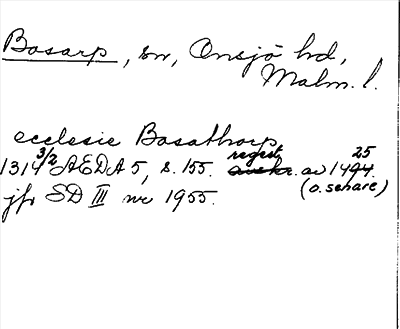 Bosarp, sn, Onsjö hd,
Malm. l.
ecclesie Bosathorp
1314 3/2 ÆDA 5, s. 155. regest av 1494. 25
(o. senare)
jfr SD III nr 1955.